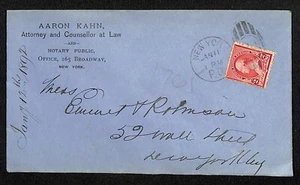 AARON KAHN,
Attorney and Counsellor at Law
AND
NOTARY PUBLIC,
OFFICE, 165 BROADWAY,
NEW YORK.
NEW YORK
Mess
Emmet & Robinson
52 Wall Street
New York City